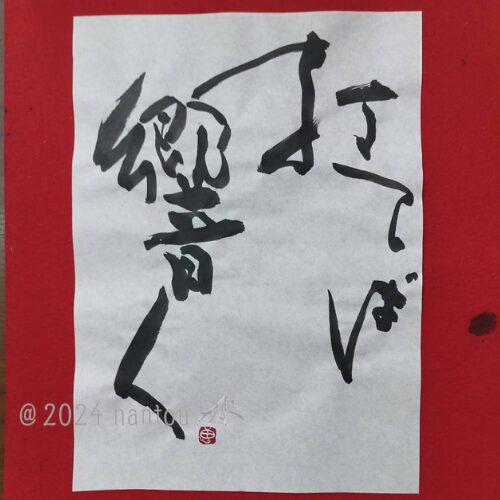 打てば
響く
@2024 nantou